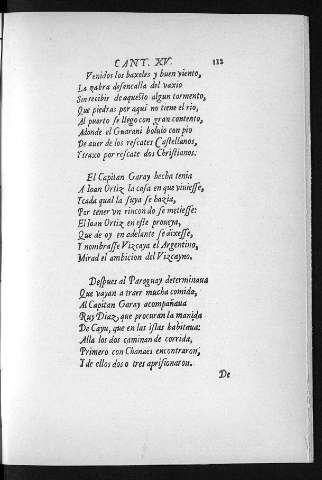 CANT. XV. 112
Venidos los baxeles y buen viento,
La zabra desencalla del vaxio
Sin recibir de aquesto algun tormento,
Que piedras por aqui no tiene el rio,
Al puerto se llego con gran contento,
Adonde el Guarani boluio con pio
De auer de los rescates Castellanos,
Y traxo por rescate dos Christianos.
El Capitan Garay hecha tenia
A Ioan Ortiz la casa en que viuiesse,
Y cada qual la suya se hazia,
Por tener vn rincon do se metiesse:
El Ioan Ortiz en este proueya,
Que de oy en adelante se dixesse,
Y nombrasse Vizcaya el Argentino,
Mirad el ambicion del Vizcayno.
Despues al Paraguay determinaua
Que vayan a traer mucha comida,
Al Capitan Garay acompañaua
Ruy Diaz, que procuran la manida
De Cayu, que en las islas habitaua:
Alla los dos caminan de corrida,
Primero con Chanaes encontraron,
Y de ellos dos o tres aprisionaron.
De